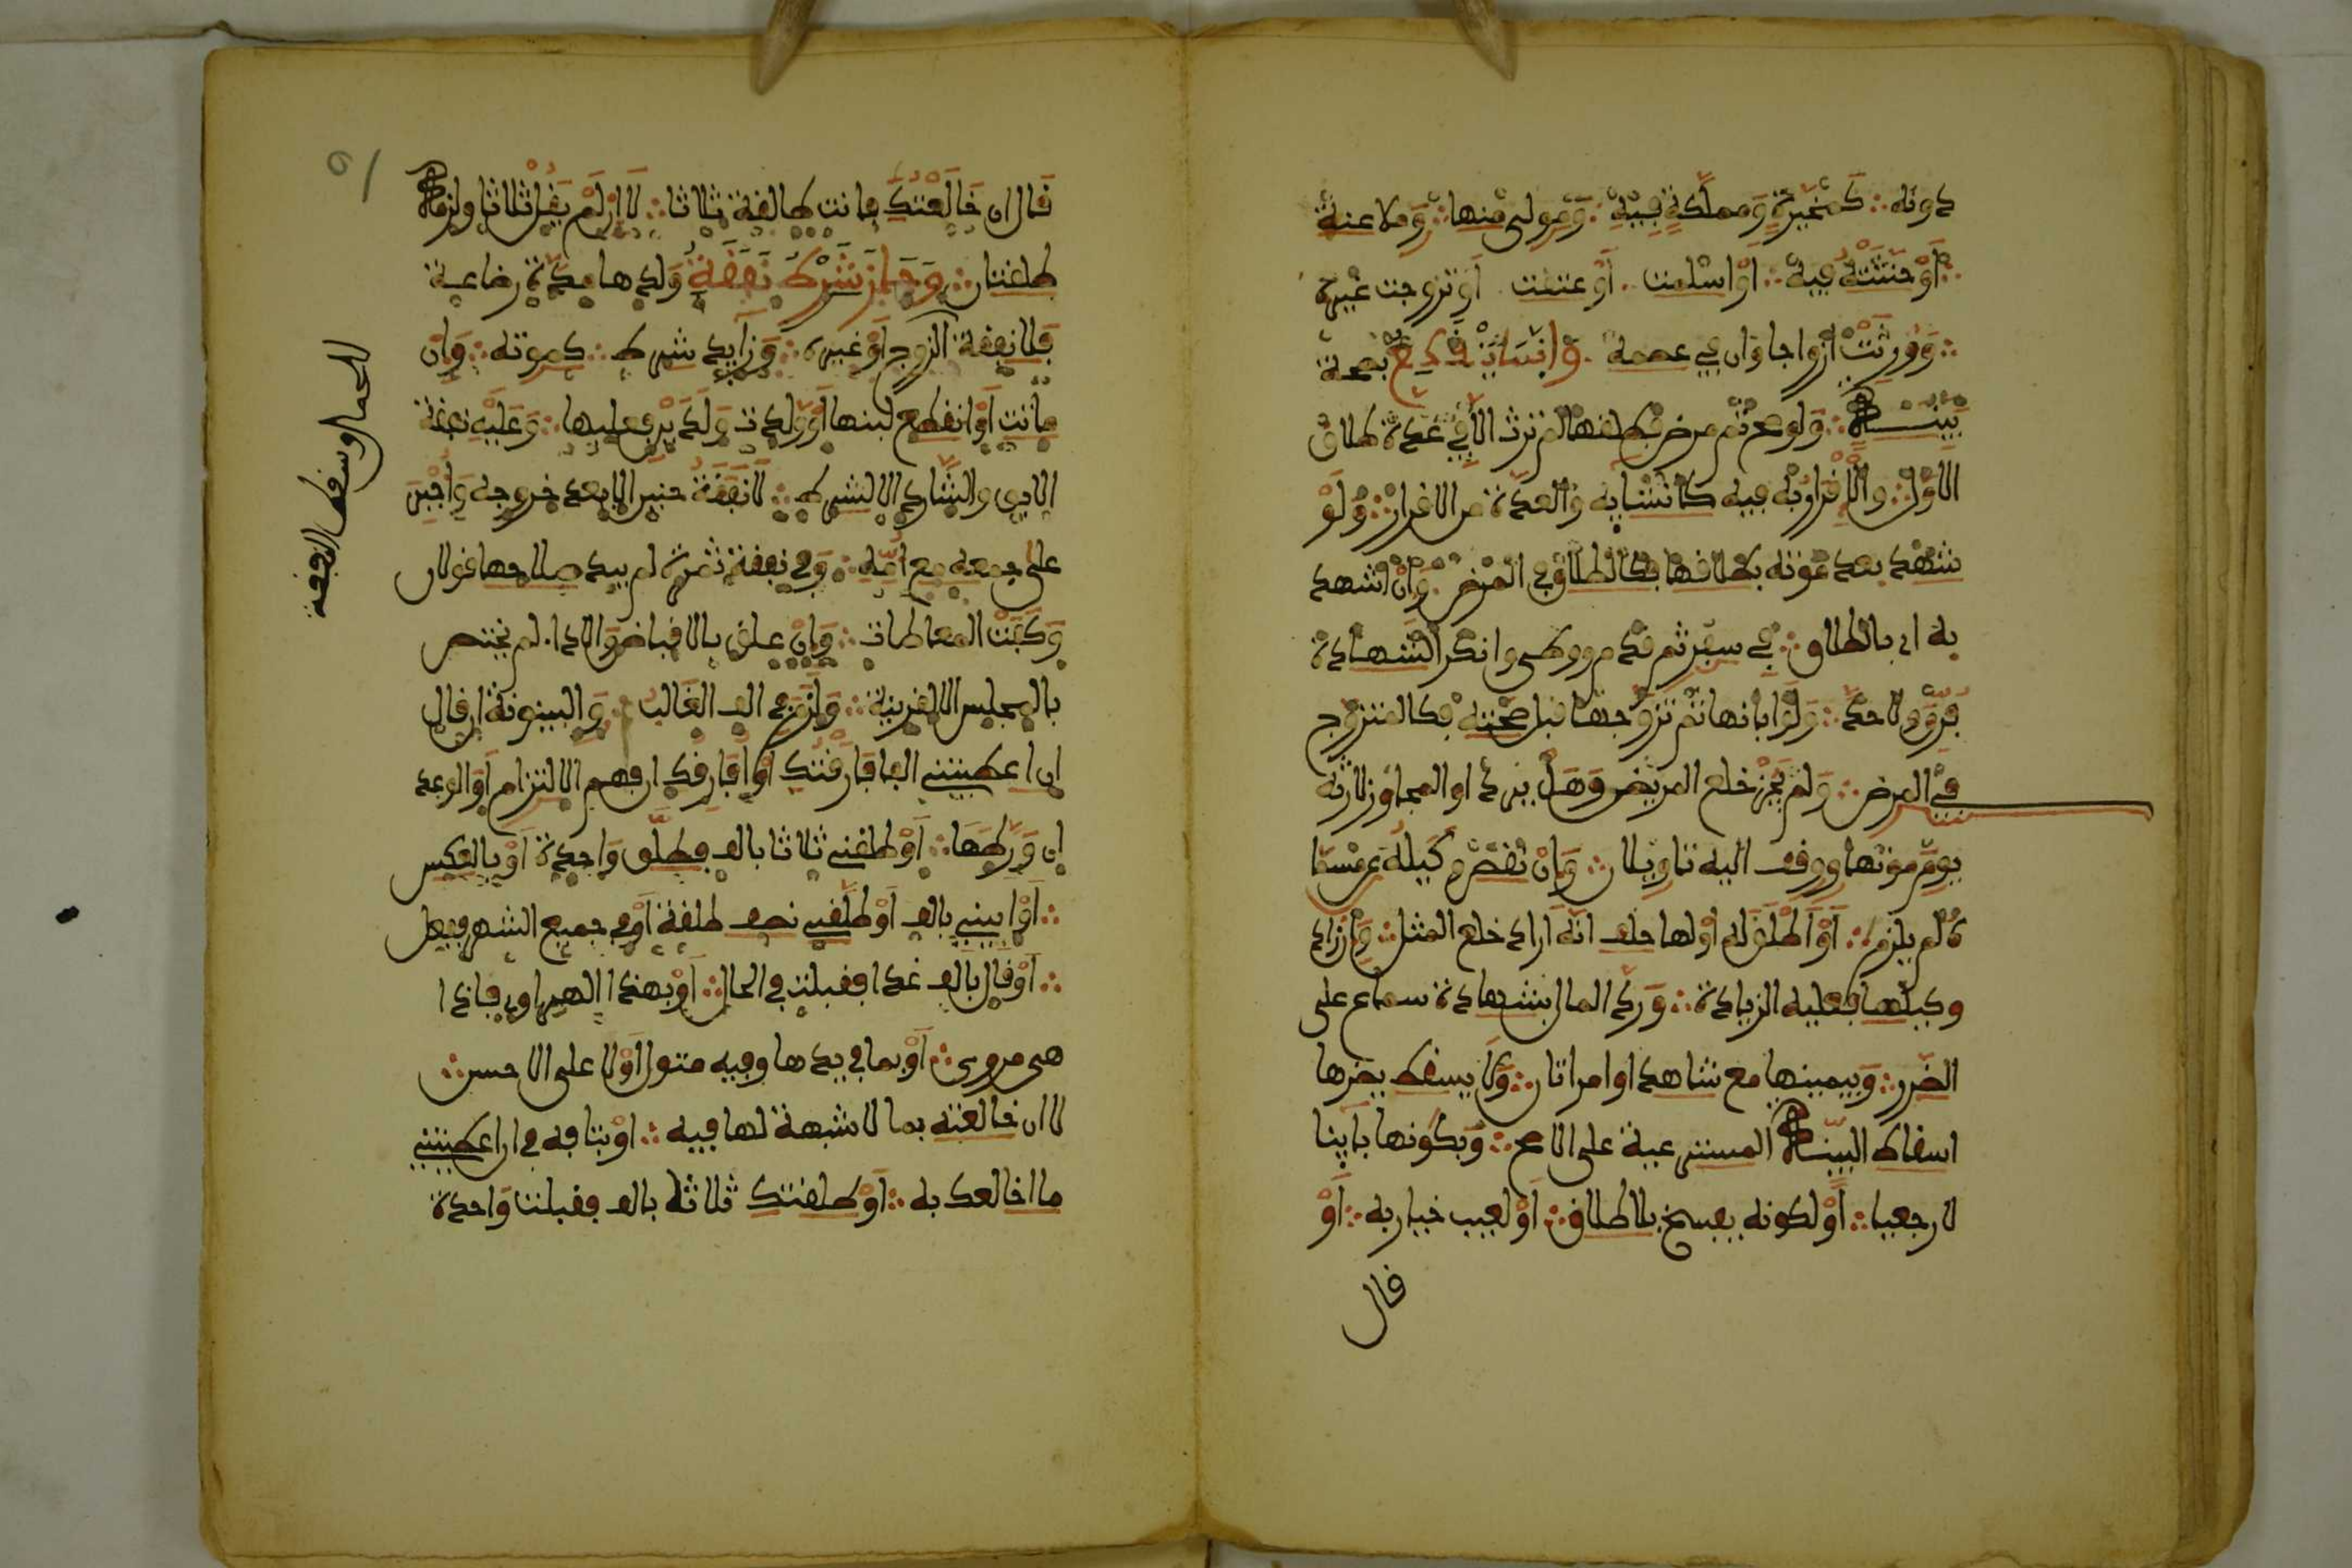 دونه كمخيرة ومملكة فيه ومولى منها وملاعنة
أو حنثته فيه أو اسلمت أو عتقت أو تزوجت غيره
وورثت أزواجا وان في عصمة وانما ينقطع بصحة
بينة ولو صح ثم مرض فطلقها لم ترث الا في عدة طلاق
الاول والإقرار به فيه كانشايه والعدة من الاقرار ولو
شهد بعد موته بطلاقها فكالطلاق في المرض وإن اشهد
به اي بالطلاق في سفر ثم قدم ووطى وانكر الشهادة
فرق ولا حد ولو ابانها ثم تزوجها قبل صحته فكالمتزوج
في المرض ولم يجز خلع المريض وهل يرد او المجاوز لارثه
يوم موتها ووقف اليه تاويلان وإن نقص وكيله عن مسما
ه لم يلزم أو أطلق له أو لها حلف انه اراد خلع المثل وإن زاد
وكيلها فعليه الزيادة ورد المال بشهادة سماع على
الضرر وبيمينها مع شاهد او امراتان ولا يسقط بضرها
اسقاط البينة المسترعية على الاصح وبكونها باينا
لا رجعيا أو لكونه يفسخ بلا طلاق أو لعيب خيار به أو
قال
قال ان خالعتك فانت طالقة ثلاثا لا إن لم يقل ثلاثا ولزمه
طلقتان وجاز شرط نفقة ولدها مدة رضاعه
فلا نفقة الزوج أو غيره وزايد شرط كموته وإن
ماتت أو انقطع لبنها أو ولدت ولدين فعليها وعليه نفقة
الابق والشارد الا لشرط لا نفقة جنين الا بعد خروجه وأجبر
على جمعه مع أمه وفي نفقة ثمرة لم يبد صلاحها قولان
وكفت المعاطاة وإن علق بالاقباض والادا لم يختص
بالمجلس الا لقرينة ولزم في الف الغالب والبينونة ان قال
ان اعطيتني الفا فارقتك أو أفارقك ان فهم الالتزام أو الوعد
ان ورطها أو طلقني ثلاثا بالف فطلق واحدة أو بالعكس
أو ابنني بالف أو طلقني نصف طلقة أو في جميع الشهر ففعل
أو قال بالف غدا فقبلت في الحال أو بهذا الهروي فاذا
هي مروي أو بما في يدها وفيه متمول أو لا على الاحسن
لا ان خالعته بما لا شبهة لها فيه أو بتافه في ان اعطيتني
ما اخالعك به أو طلقتك ثلاثة بالف فقبلت واحدة